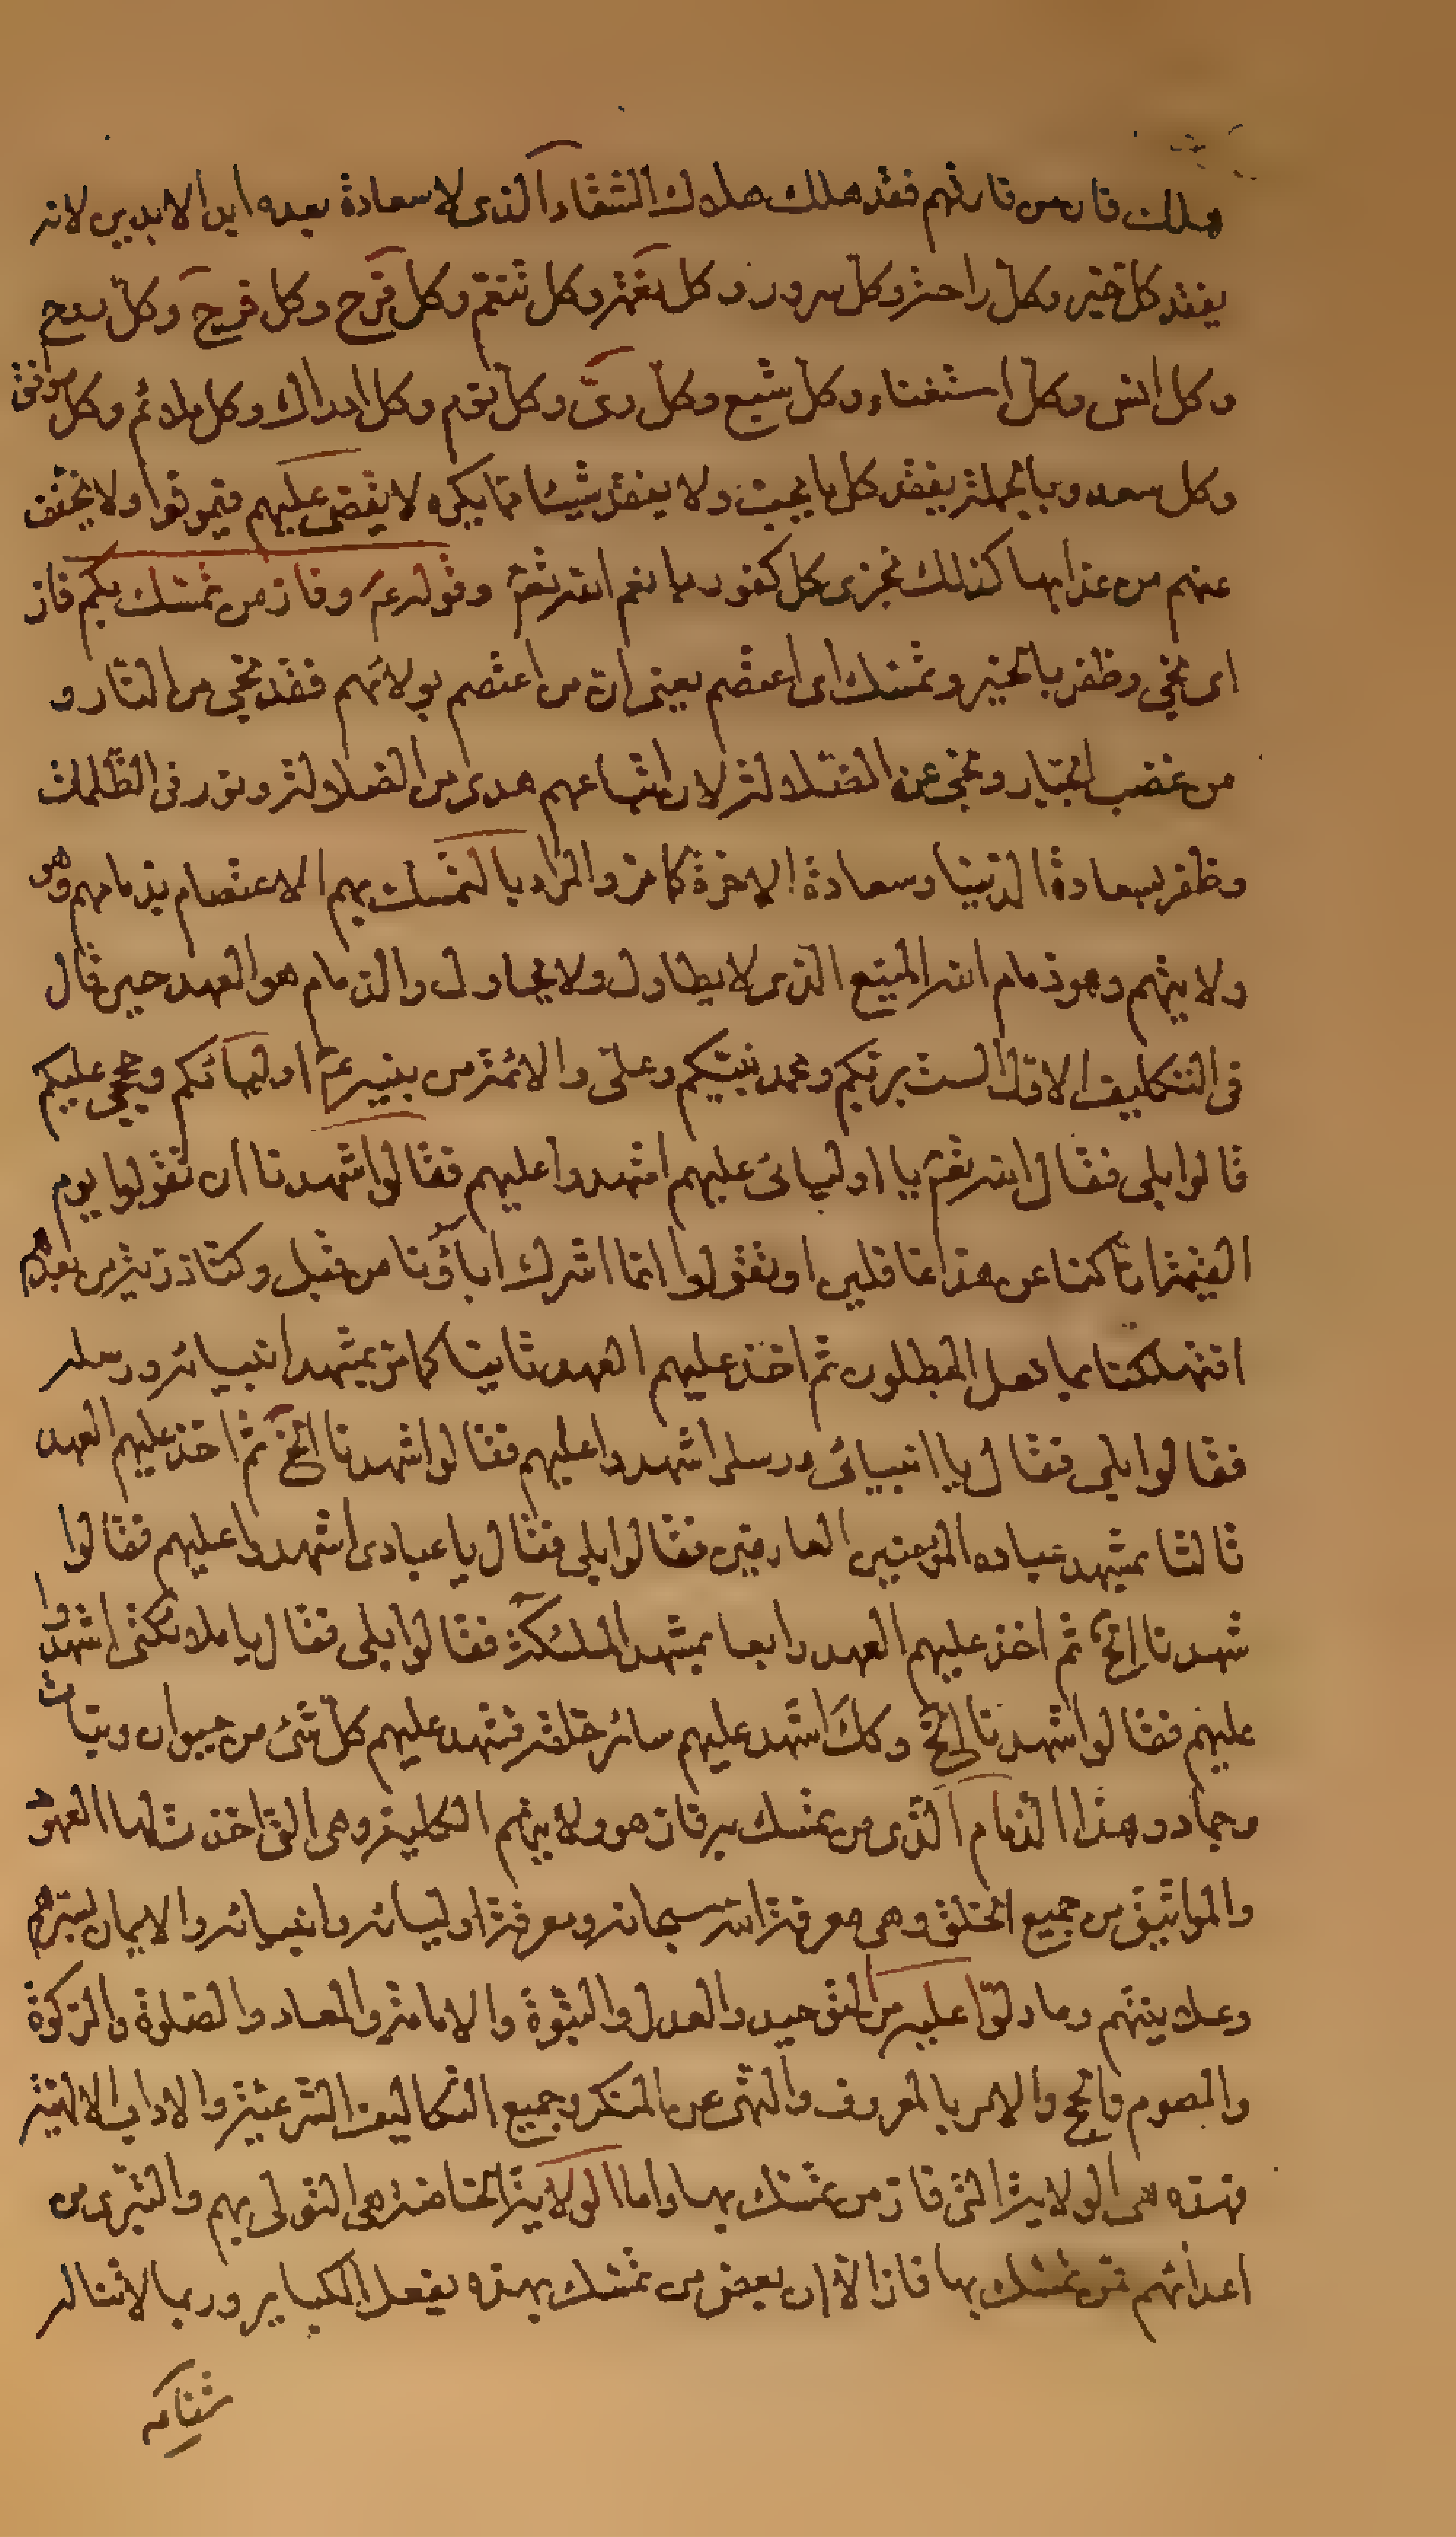 هلك فان من فارقهم فقد هلك هلاك الشقاء الذى لا سعادة بعده ابدا لابدين لانه
يفقد كل خير وكل راحة وكل سرور وكل نعمة وكل تنعّم وكل فرح وكل فرج وكلّ
وكل انس وكل استغناء وكل شبع وكل رىّ وكل نوم وكل ادراك وكل ملائم وكل موافق
وكل سعد وبالجملة يفقد كل ما يحبّ ولا يفقد شيئا ممّا يكره لا يقضى عليهم فيموتوا ولا يخفف
عنهم من عذابها كذلك نجزى كل كفور بما نعم الله تعم وقوله عم وفاز من تمسّك بكم فاز
اى نجى وظفر بالخير وتمسّك اى اعتصم يعنى ان من اعتصم بولائهم فقد نجى من النّار و
من غضب الجبّار ونجى عن الضّلالة لان اتّباعهم هدى من الضلالة ونور فى الظّلمات
وظفر بسعادة الدّنيا وسعادة الاخرة كما مرّ والمراد بالتمسّك بهم الاعتصام بذمامهم وهو
ولايتهم وهو ذمام الله المنيع الذى لا يطاول ولا يحاول والذمام هو العهد حين قال
فى التكليف الاوّل الست بربّكم ومحمد نبيّكم وعلىّ والائمة من بنيه عم اوليائكم وحججى عليكم
قالوا بلى فقال الله تعم يا اوليائى عليهم اشهدوا عليهم فقالوا شهدنا ان تقولوا يوم
القيمة انّا كنا عن هذا غافلين او تقولوا انّما اشرك اباؤنا من قبل وكنّا ذرّيّة من بعدهم
افتهلكنا بما فعل المبطلون ثم اخذ عليهم العهد ثانيا كما مرّ بمشهد انبيائه ورسله
فقالوا بلى فقال يا انبيائى ورسلى اشهدوا عليهم فقالوا شهدنا الخ ثم اخذ عليهم العهد
ثالثا بمشهد عباده المؤمنين العارفين فقالوا بلى فقال يا عبادى اشهدوا عليهم فقالوا
شهدنا الخ ثم اخذ عليهم العهد رابعا بمشهد الملئكة فقالوا بلى فقال يا ملائكتى اشهدوا
عليهم فقالوا شهدنا الخ وكك اشهد عليهم سائر خلقه فشهد عليهم كل شىء من حيوان ونبات
وجماد وهذا الذمام الذّى من تمسّك به فاز هو ولايتهم الكلية وهى التى اخذت لها العهود
والمواثيق من جميع الخلق وهى معرفة الله سبحانه ومعرفة اوليائه وانبيائه والايمان بسرّهم
وعلانيتهم وما دلّوا عليه من التوحيد والعدل والنبوّة والامامة والمعاد والصّلوة والزكوة
والصوم والحج والامر بالمعروف والنهى عن المنكر وجميع التكاليف الشرعيّة والاداب الالهيّة
فهذه هى الولاية التى فاز من تمسّك بها واما الولاية الخاصة هى التولى بهم والتبرّى من
اعدائهم فمن تمسّك بها فاز الا ان بعض من تمسّك بهذه يفعل الكباير وربما لا تناله
شفاعة